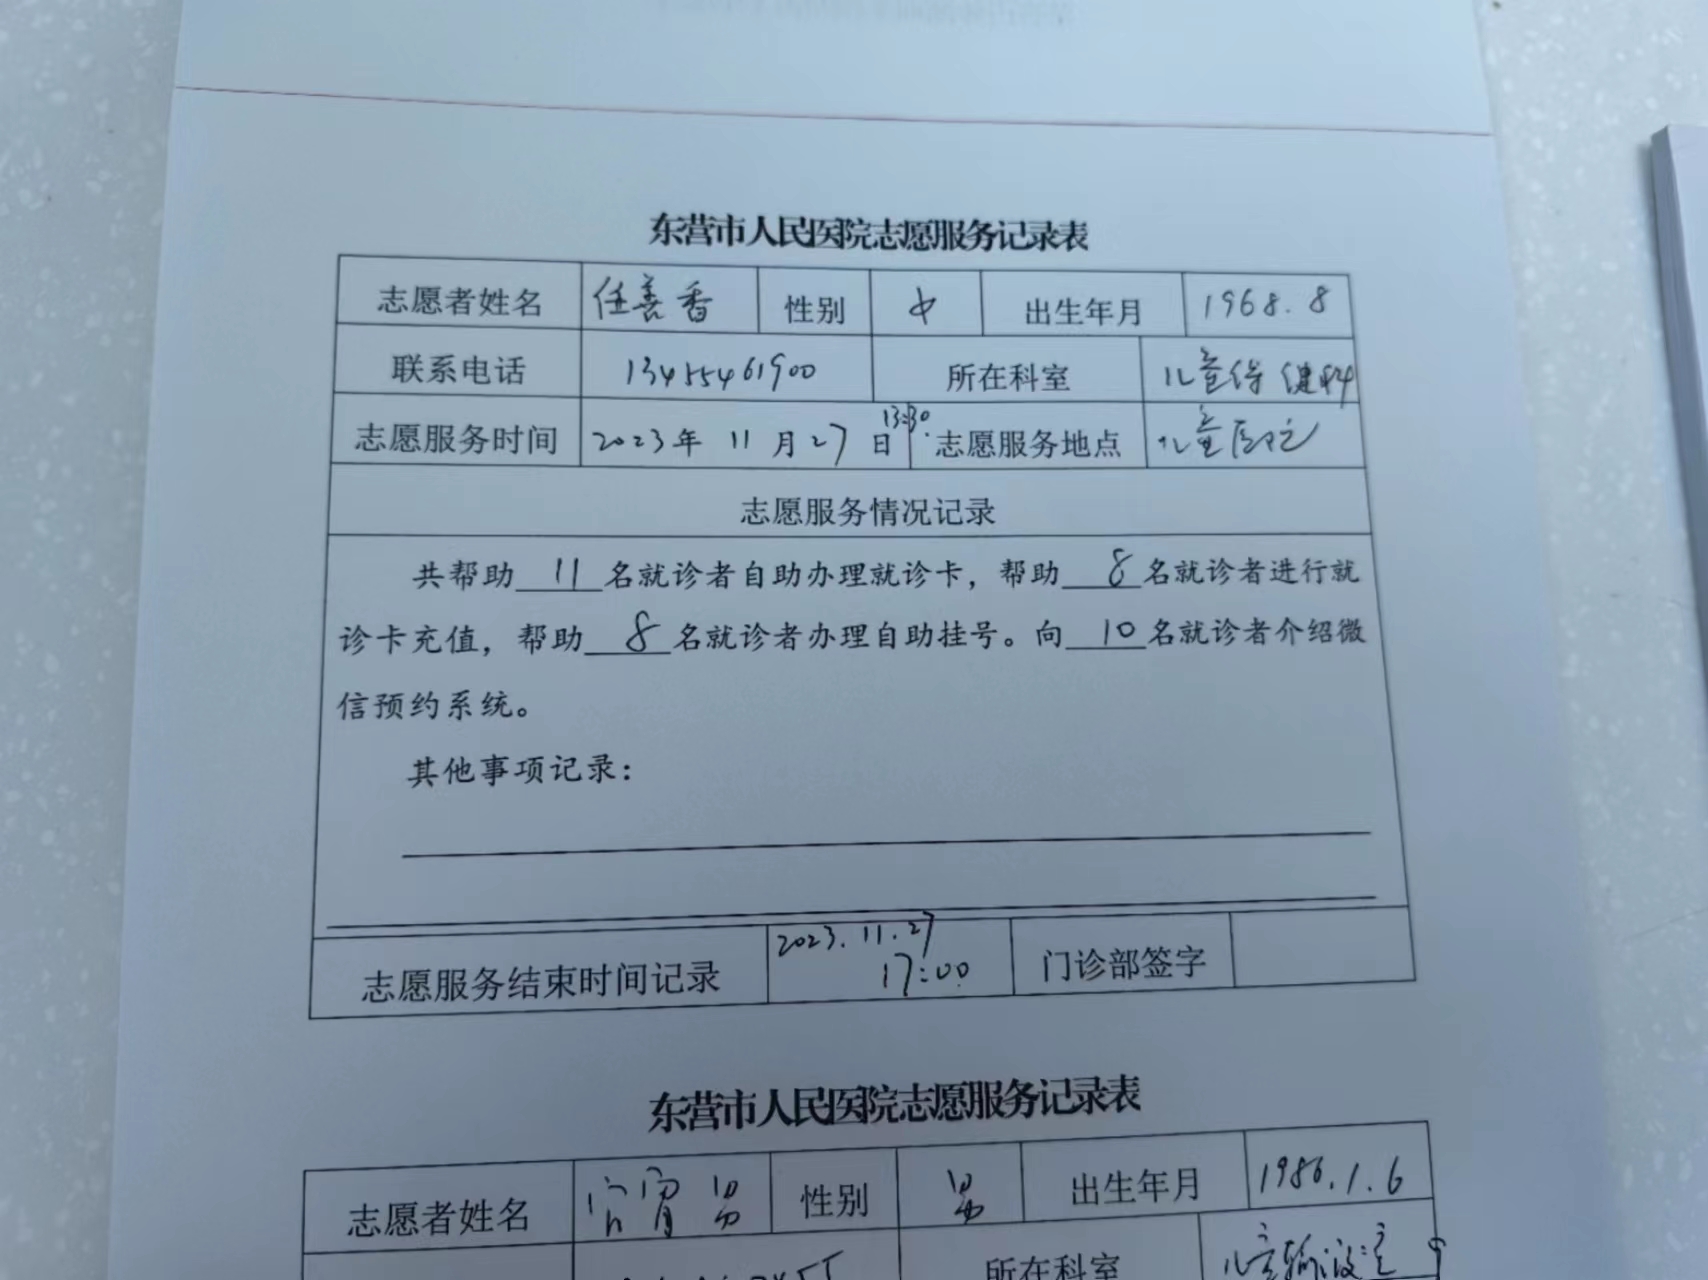 东营市人民医院志愿服务记录表
志愿者姓名 任善香 性别 女 出生年月 1968.8
联系电话 13455461900 所在科室 儿童保健科
志愿服务时间 2023年 11 月 27 日 13:30 志愿服务地点 儿童医院
志愿服务情况记录
共帮助 11 名就诊者自助办理就诊卡，帮助 8 名就诊者进行就
诊卡充值，帮助 8 名就诊者办理自助挂号。向 10 名就诊者介绍微
信预约系统。
其他事项记录：
志愿服务结束时间记录 2023.11.27 17:00 门诊部签字
东营市人民医院志愿服务记录表
志愿者姓名 性别 男 出生年月 1986.1.6
所在科室